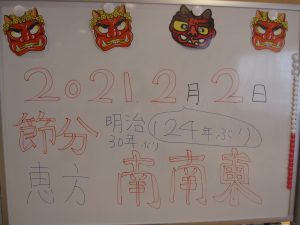 2021.2月2日
節分 明治30年ぶり(124年ぶり)
恵方 南南東